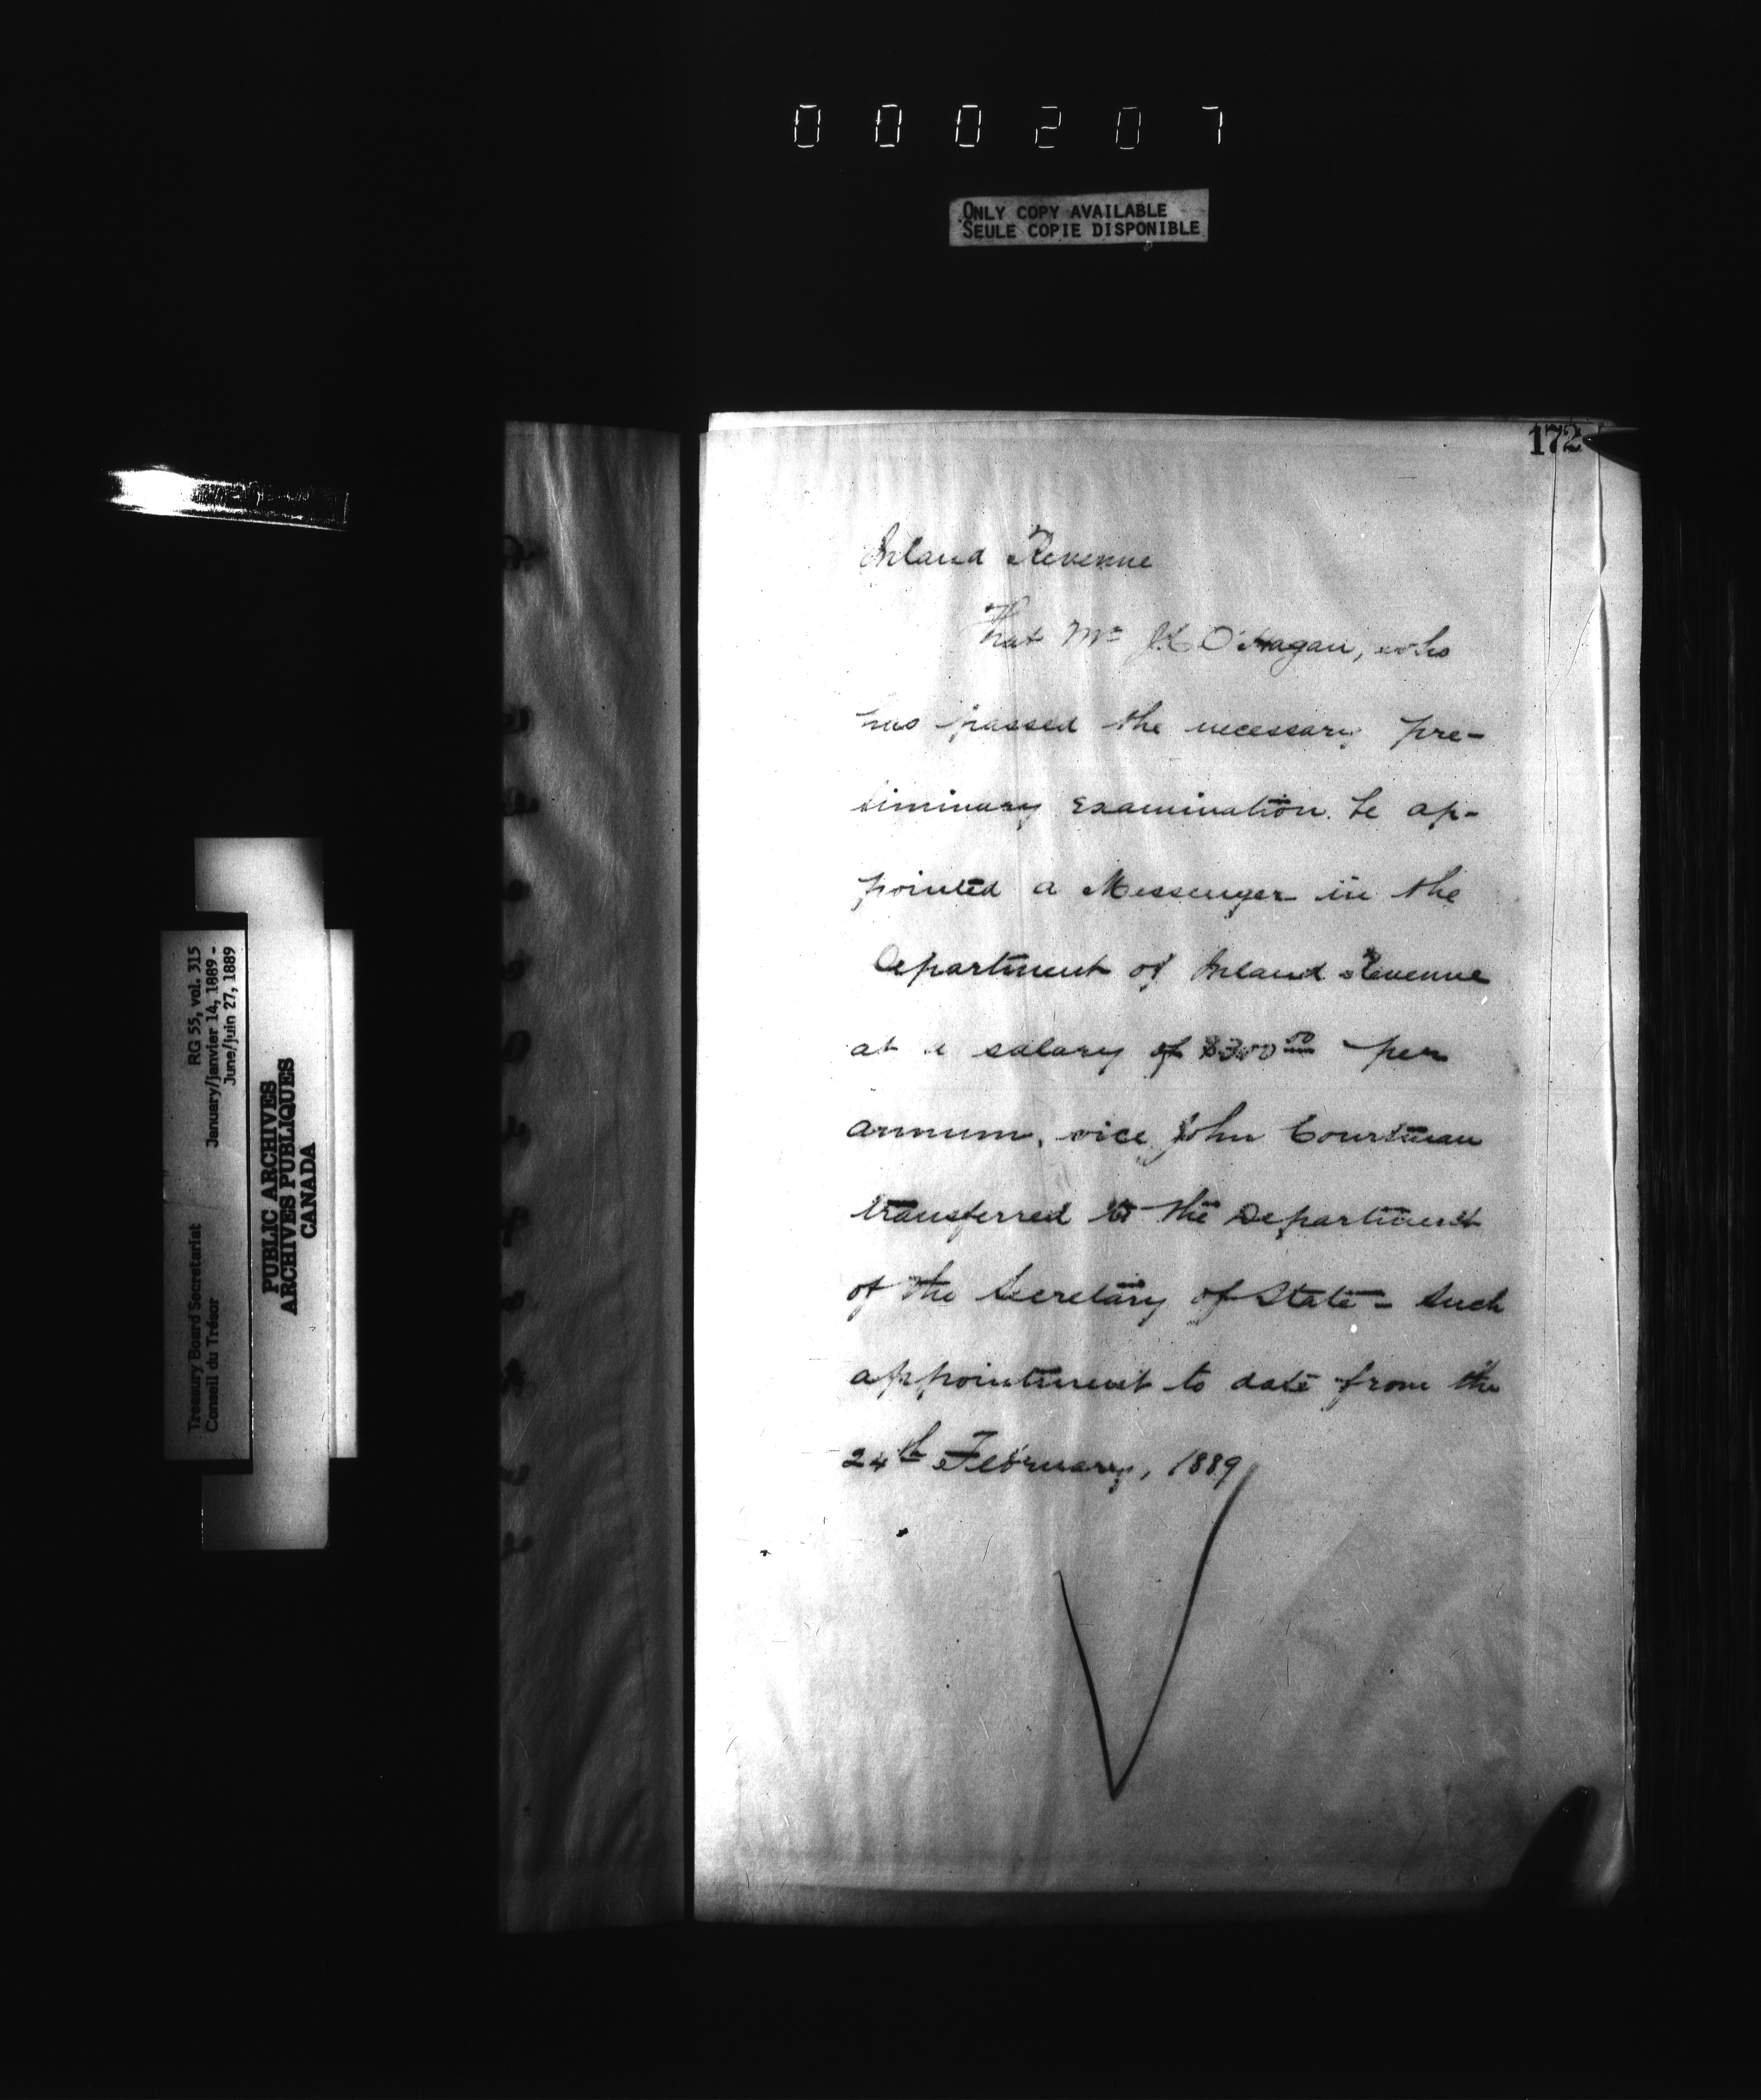 000207
ONLY COPY AVAILABLE
SEULE COPIE DISPONIBLE
172
Inland Revenue
That Mr J.L. O'Hagan, who
has passed the necessary pre-
liminary examination be ap-
pointed a Messenger in the
Department of Inland Revenue
at a salary of $300.00 per
annum, vice John Courtman
transferred to the Department
of the Secretary of State - Such
appointment to date from the
24th February, 1889
Treasury Board Secretariat RG 55, vol. 315
Conseil du Trésor January/janvier 14, 1889 -
June/juin 27, 1889
PUBLIC ARCHIVES
ARCHIVES PUBLIQUES
CANADA